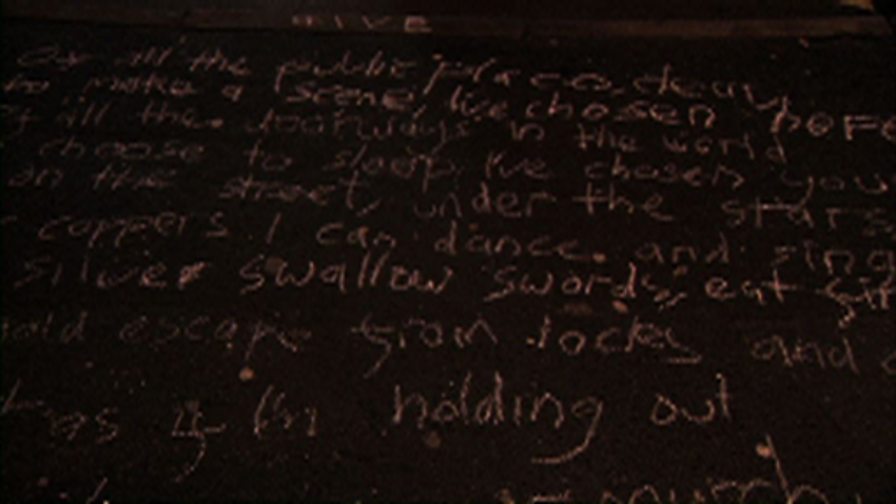 Of all the public places, dear
to make a scene, I've chosen here
of all the doorways in the world
choose to sleep, I've chosen you
on the street, under the stars
coppers I can dance and sing
silver swallow swords, eat
escape from locks and
as if I'm holding out